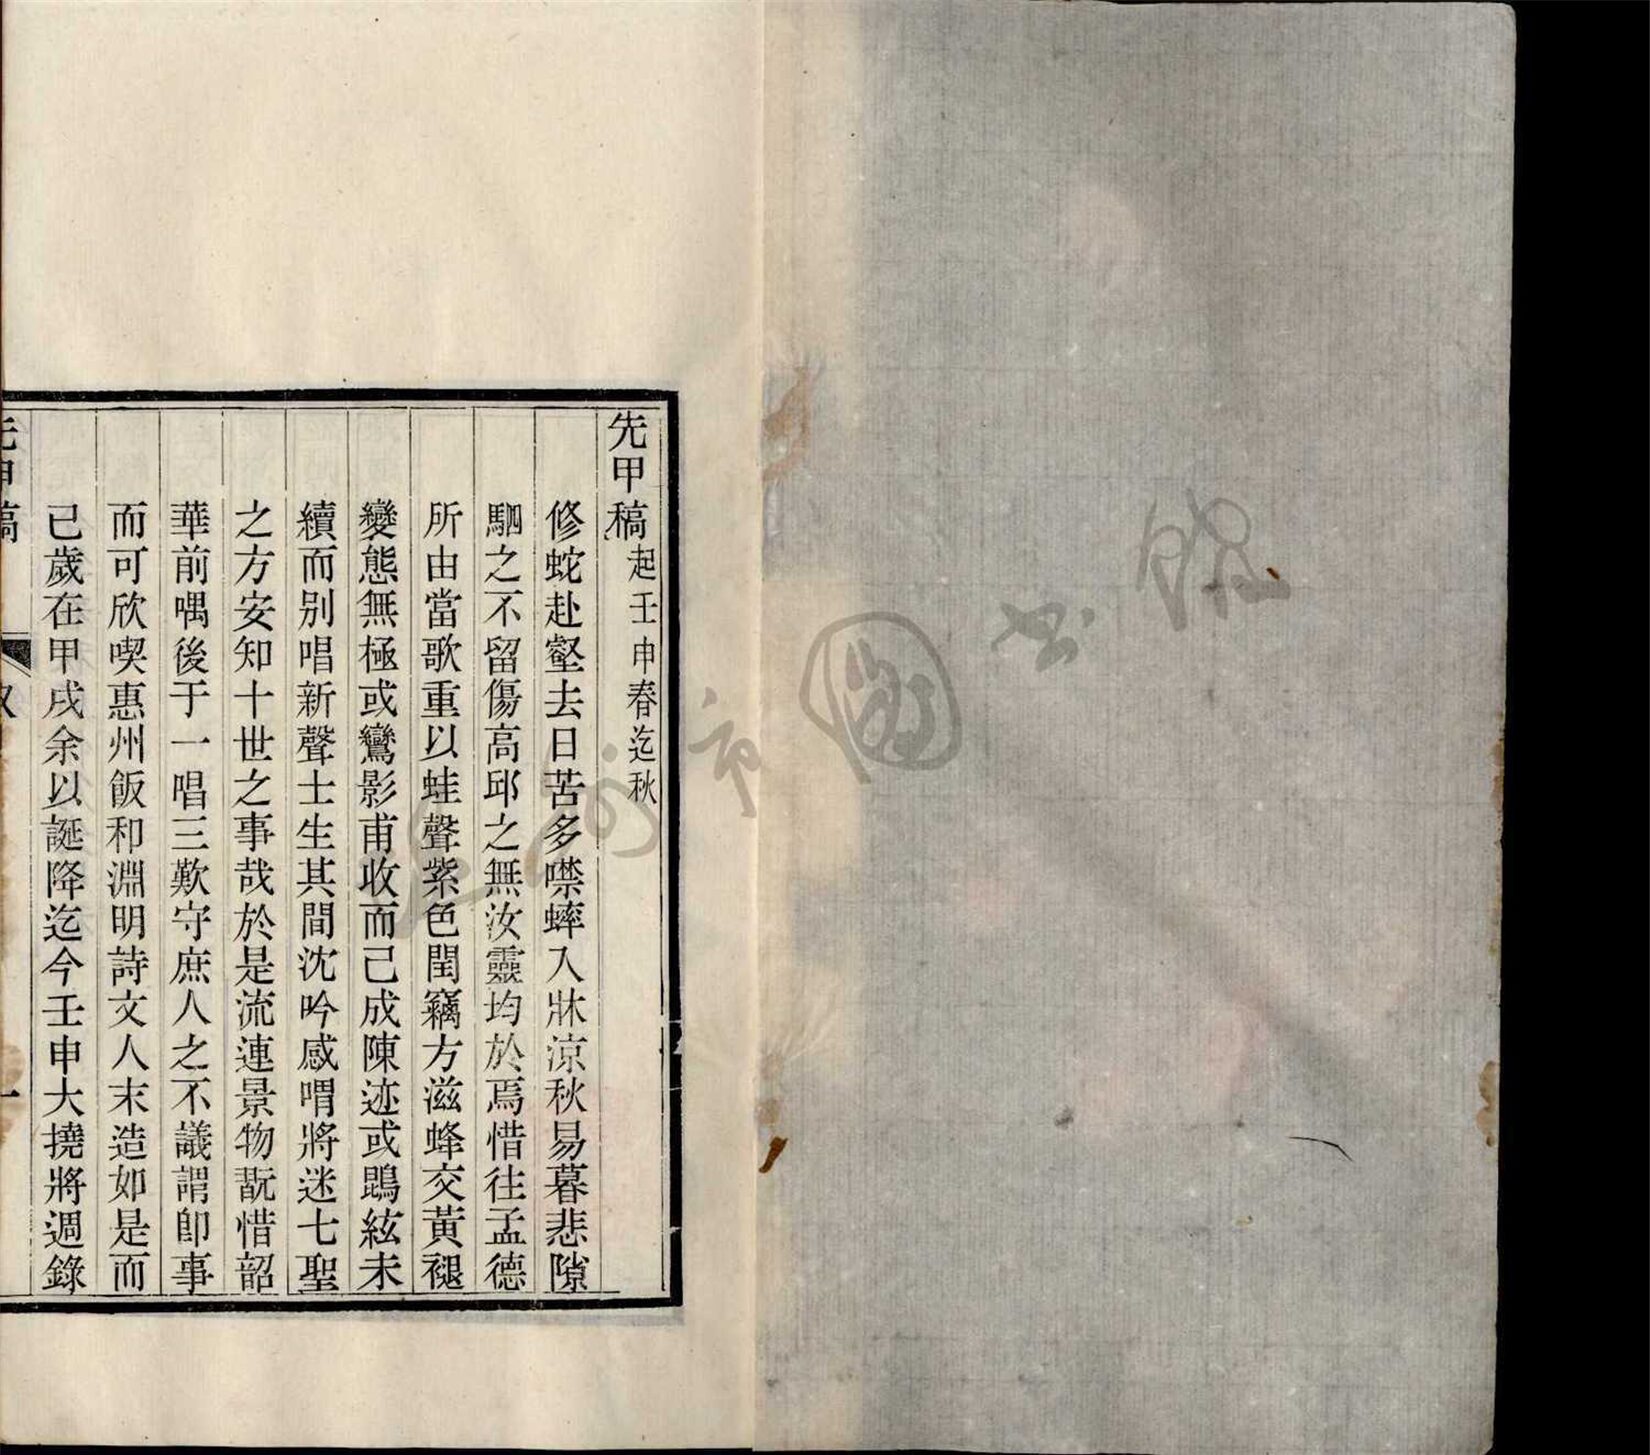 先甲稿起壬申春迄秋
修蛇赴壑去日苦多噤蟀入牀涼秋易暮悲隙
駟之不留傷高邱之無汝靈均於焉惜往孟德
所由當歌重以蛙聲紫色閏竊方滋蜂交黃褪
變態無極或鸞影甫收而已成陳迹或鵾絃未
續而別唱新聲士生其間沈吟感喟將迷七聖
之方安知十世之事哉於是流連景物翫惜韶
華前喁後于一唱三歎守庶人之不議謂卽事
而可欣喫惠州飯和淵明詩文人末造如是而
已歲在甲戌余以誕降迄今壬申大撓將週錄
先甲稿